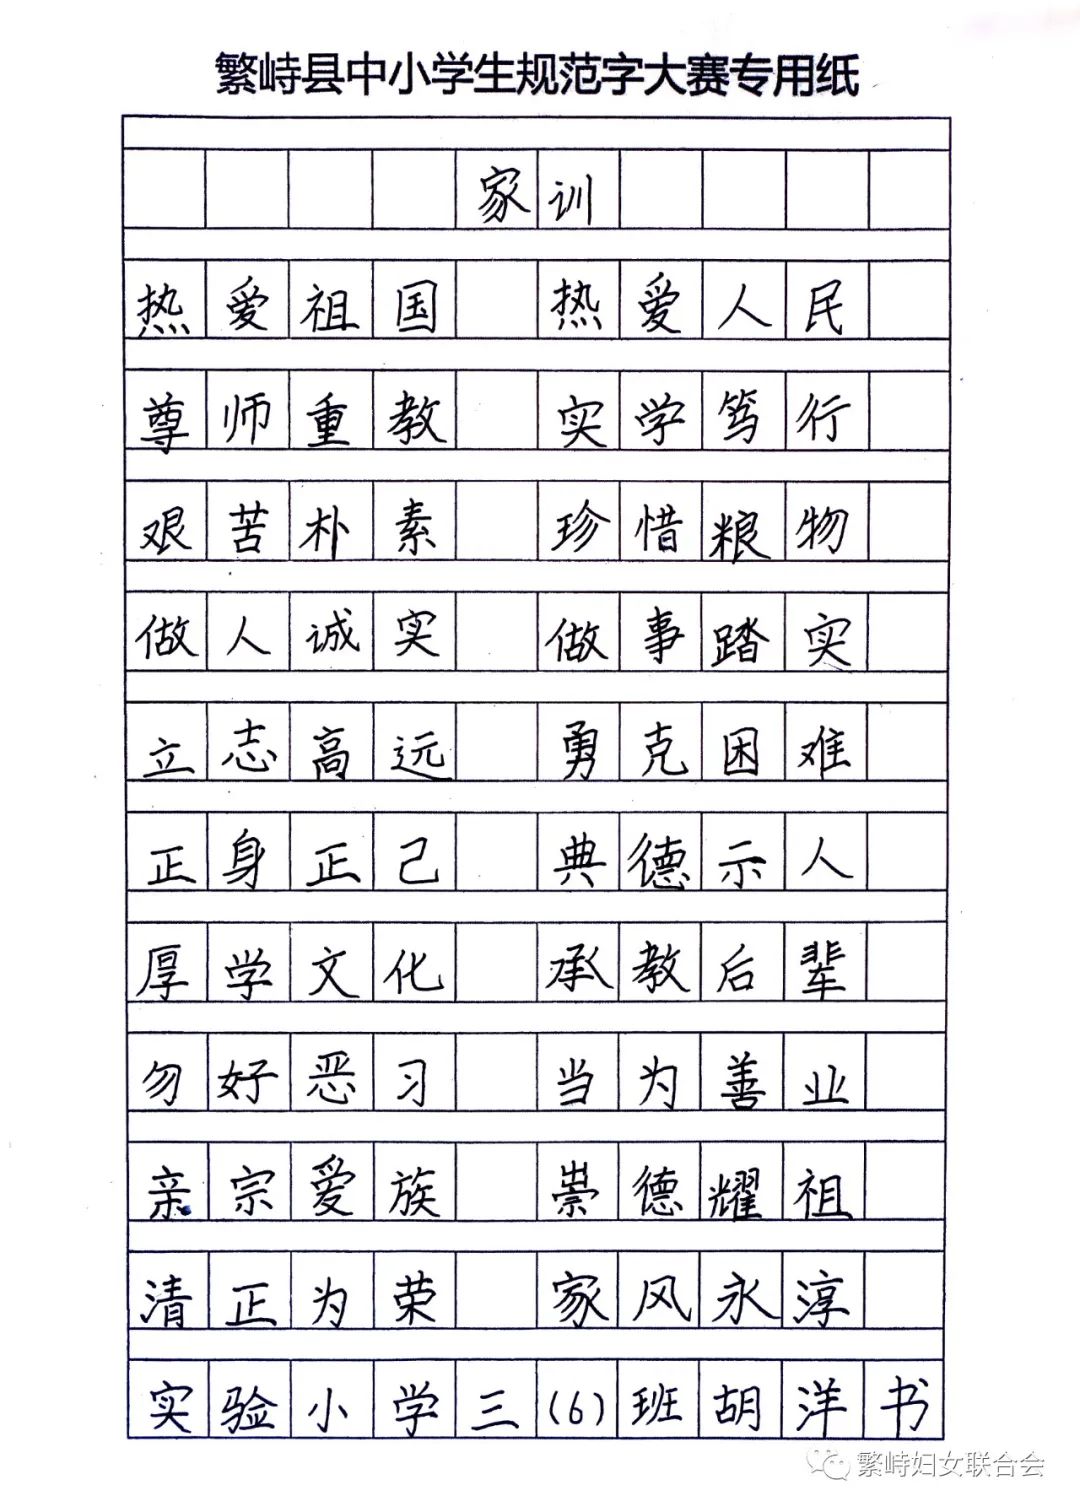 繁峙县中小学生规范字大赛专用纸
家训
热爱祖国 热爱人民
尊师重教 实学笃行
艰苦朴素 珍惜粮物
做人诚实 做事踏实
立志高远 勇克困难
正身正己 典德示人
厚学文化 承教后辈
勿好恶习 当为善业
亲宗爱族 崇德耀祖
清正为荣 家风永淳
实验小学三(6)班胡洋书
繁峙妇女联合会